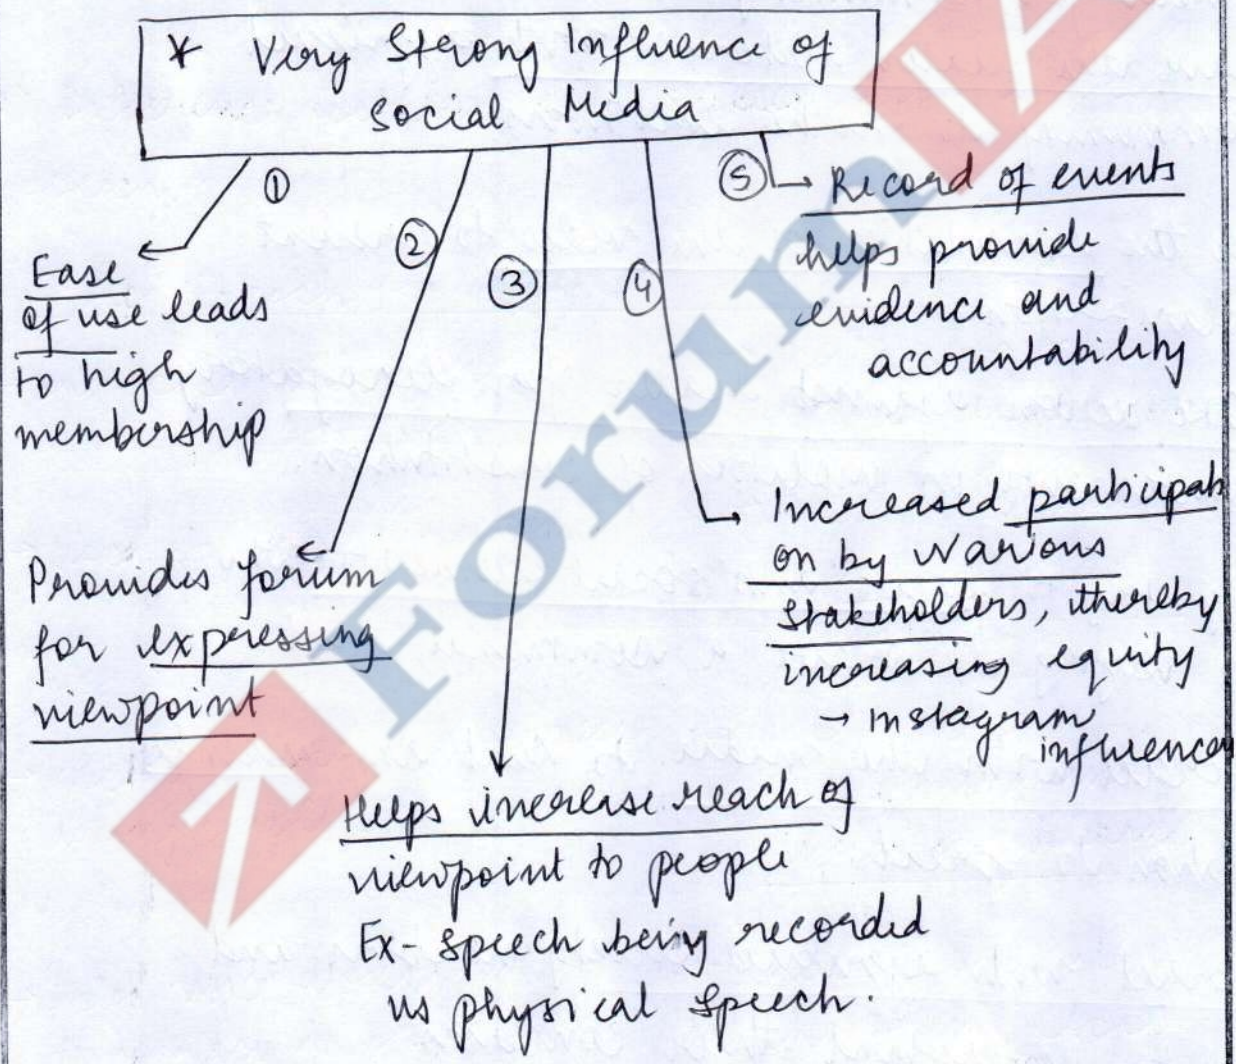 * Very Strong Influence of
Social Media
①
Ease
of use leads
to high
membership
②
Provides forum
for expressing
viewpoint
③
Helps increase reach of
viewpoint to people
Ex- Speech being recorded
vs physical speech.
④
Increased participati
on by various
stakeholders, thereby
increasing equity
→ Instagram
influencer
⑤
Record of events
helps provide
evidence and
accountability
ForumIA